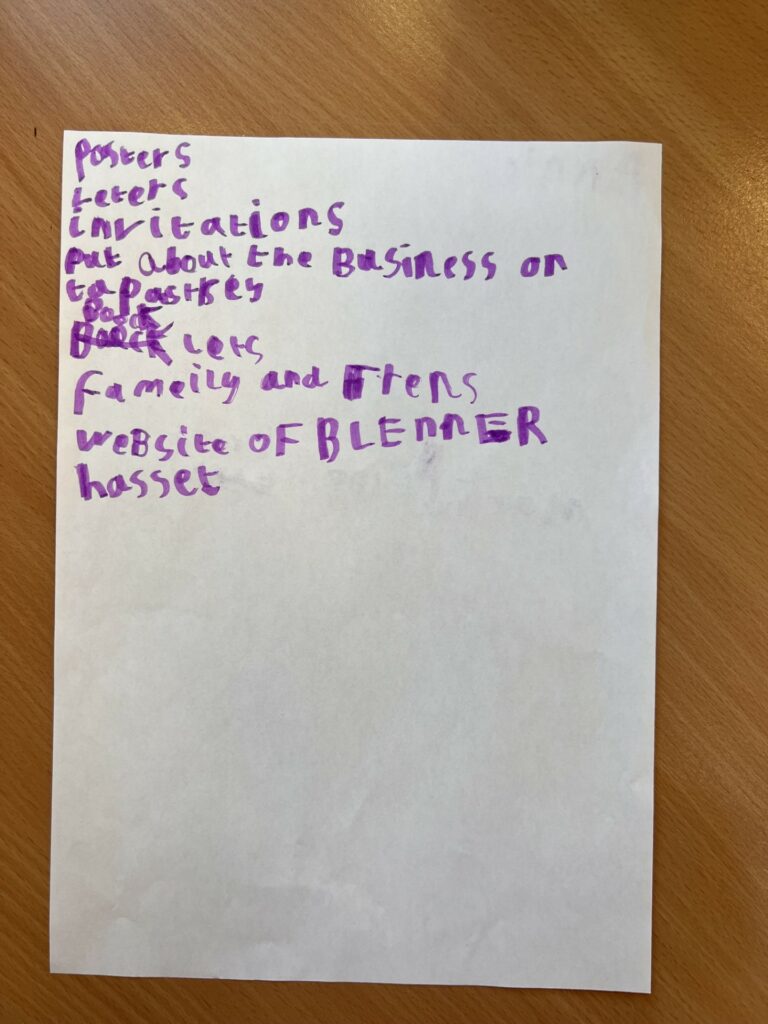 Posters
Leters
invitations
put about the Business on
to Pastrey
Book
lets
Fameily and Frens
weBsite oF BLEnnER
hasset